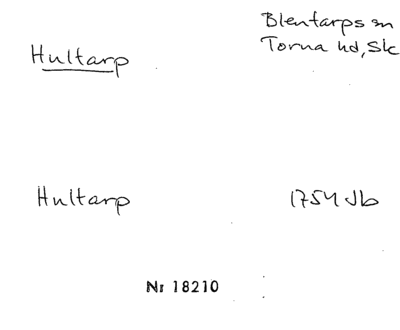 Hultarp
Blentarps sn
Torna hd, Sk
Hultarp
1754 Jb
Nr 18210